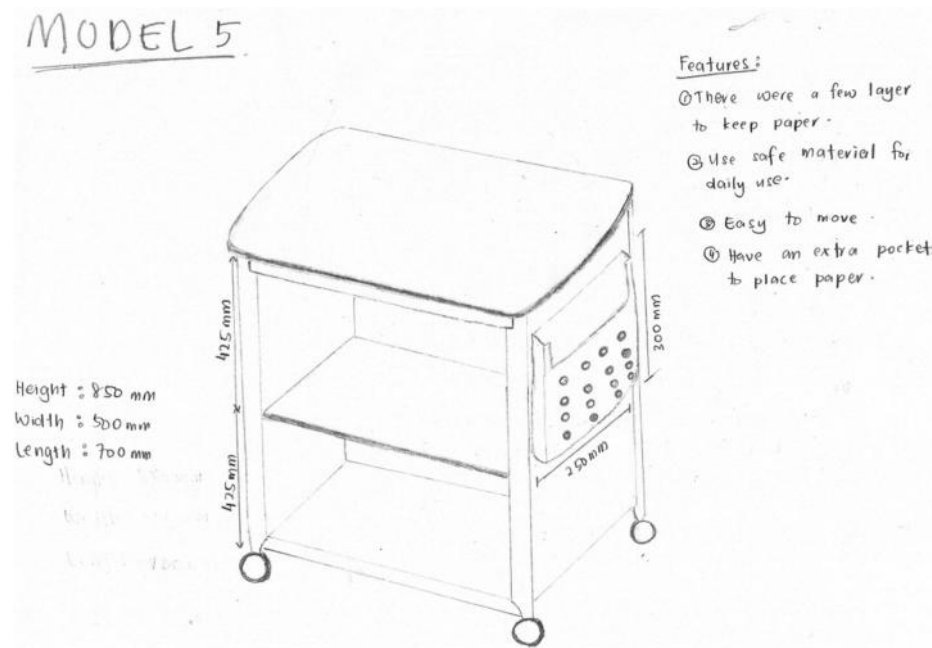 MODEL 5
Features :
① There were a few layer
to keep paper.
② Use safe material for
daily use.
③ Easy to move.
④ Have an extra pocket
to place paper.
425 mm
300 mm
Height : 850 mm
Width : 500 mm
Length : 700 mm
250 mm
425 mm